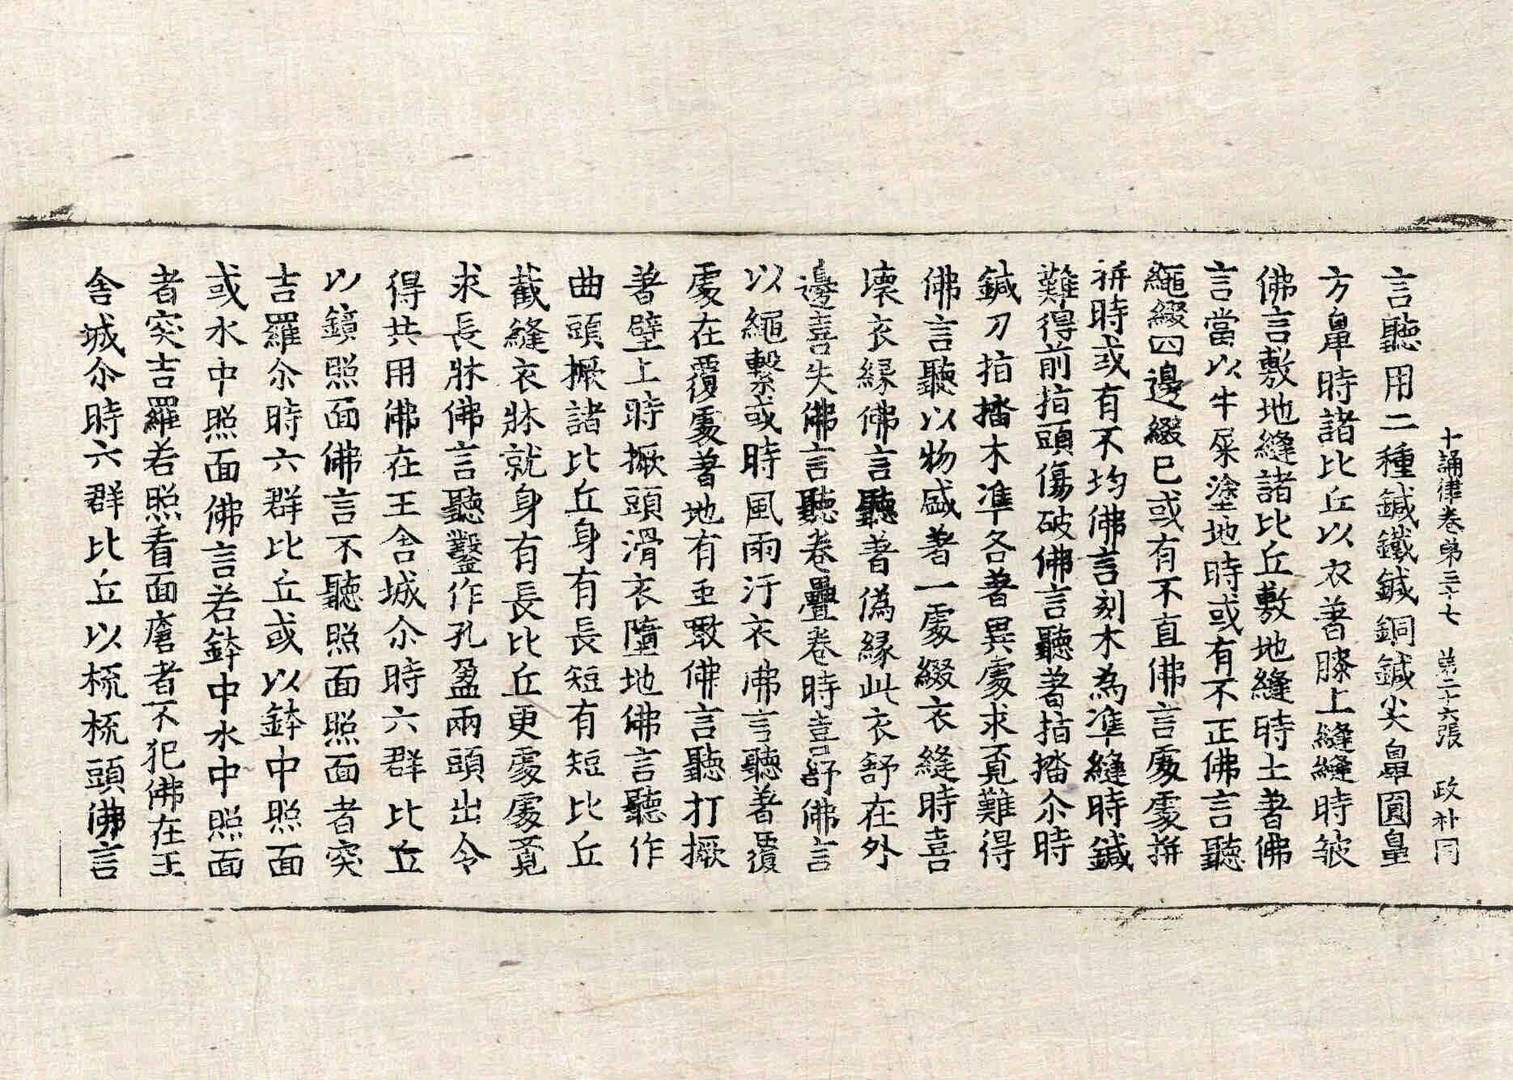 十誦律卷第三十七 第二十六張 政補同
言聽用二種鍼鐵鍼銅鍼尖鼻圓鼻
方鼻時諸比丘以衣著膝上縫縫時皱
佛言敷地縫諸比丘敷地縫時土著佛
言當以牛屎塗地時或有不正佛言聽
繩綴四邊綴已或有不直佛言處處拼
拼時或有不均佛言刻木為准縫時鍼
難得前指頭傷破佛言聽著指揩尒時
鍼刀指揩木准各著異處求覓難得
佛言聽以物盛著一處綴衣縫時喜
壞衣緣佛言聽著偽緣此衣舒在外
邊喜失佛言聽卷疊卷時喜舒佛言
以繩繫或時風雨汙衣佛言聽著覆
處在覆處著地有虫噉佛言聽打橛
著壁上時橛頭滑衣墮地佛言聽作
曲頭橛諸比丘身有長短有短比丘
截縫衣牀就身有長比丘更處處覓
求長牀佛言聽鑿作孔盈兩頭出令
得共用佛在王舍城尒時六群比丘
以鏡照面佛言不聽照面照面者突
吉羅尒時六群比丘或以鉢中照面
或水中照面佛言若鉢中水中照面
者突吉羅若照看面瘡者不犯佛在王
舍城尒時六群比丘以梳梳頭佛言